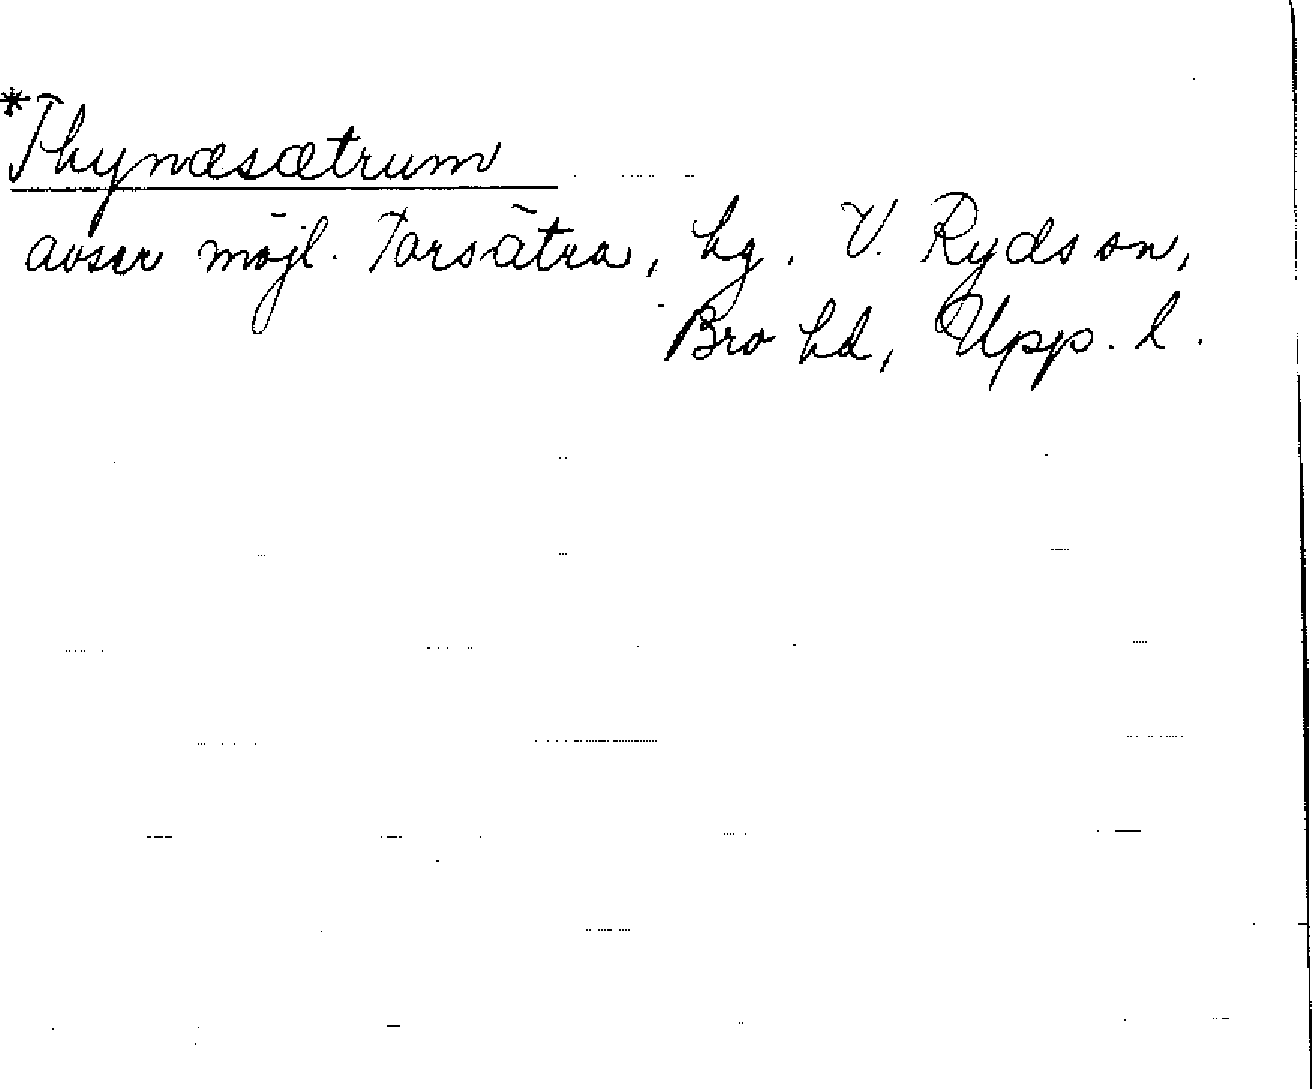 *Thynæsætrum
avser möjl. Torsätra, hg. V. Ryds sn,
Bro hd, Upp. l.